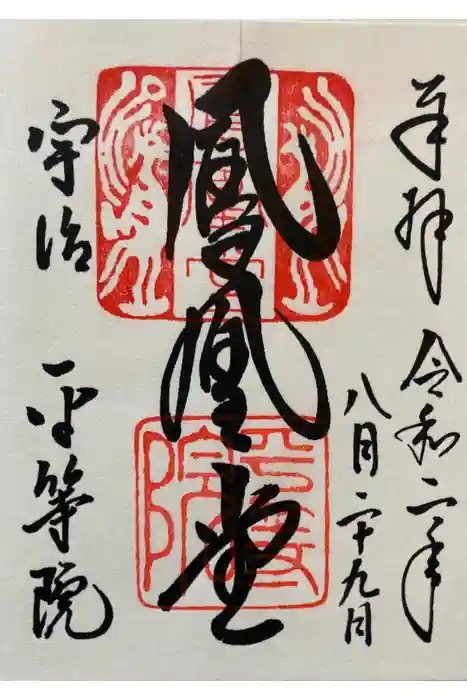 奉拝 令和二年
八月二十九日
鳳凰堂
宇治 平等院